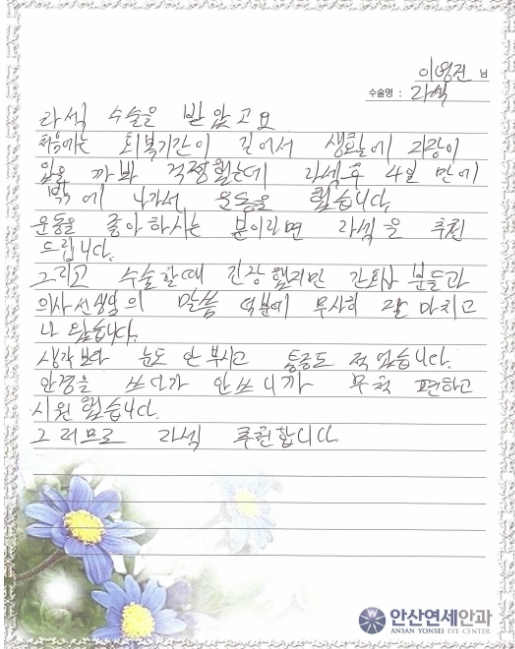 이영진 님
수술명 : 라섹
라섹 수술을 받았고요
처음에는 회복기간이 길어서 생활에 지장이
있을까봐 걱정했는데 라섹후 4일 만에
밖에 나가서 운동을 했습니다.
운동을 좋아하시는 분이라면 라섹을 추천
드립니다.
그리고 수술할때 긴장했지만 간호사 분들과
의사선생님의 말씀 덕분에 무사히 잘 마치고
나왔습니다.
생각보다 눈도 안 부시고 통증도 적었습니다.
안경을 쓰다가 안쓰니까 무척 편하고
시원했습니다.
그러므로 라섹 추천합니다.
안산연세안과
ANSAN YONSEI EYE CENTER